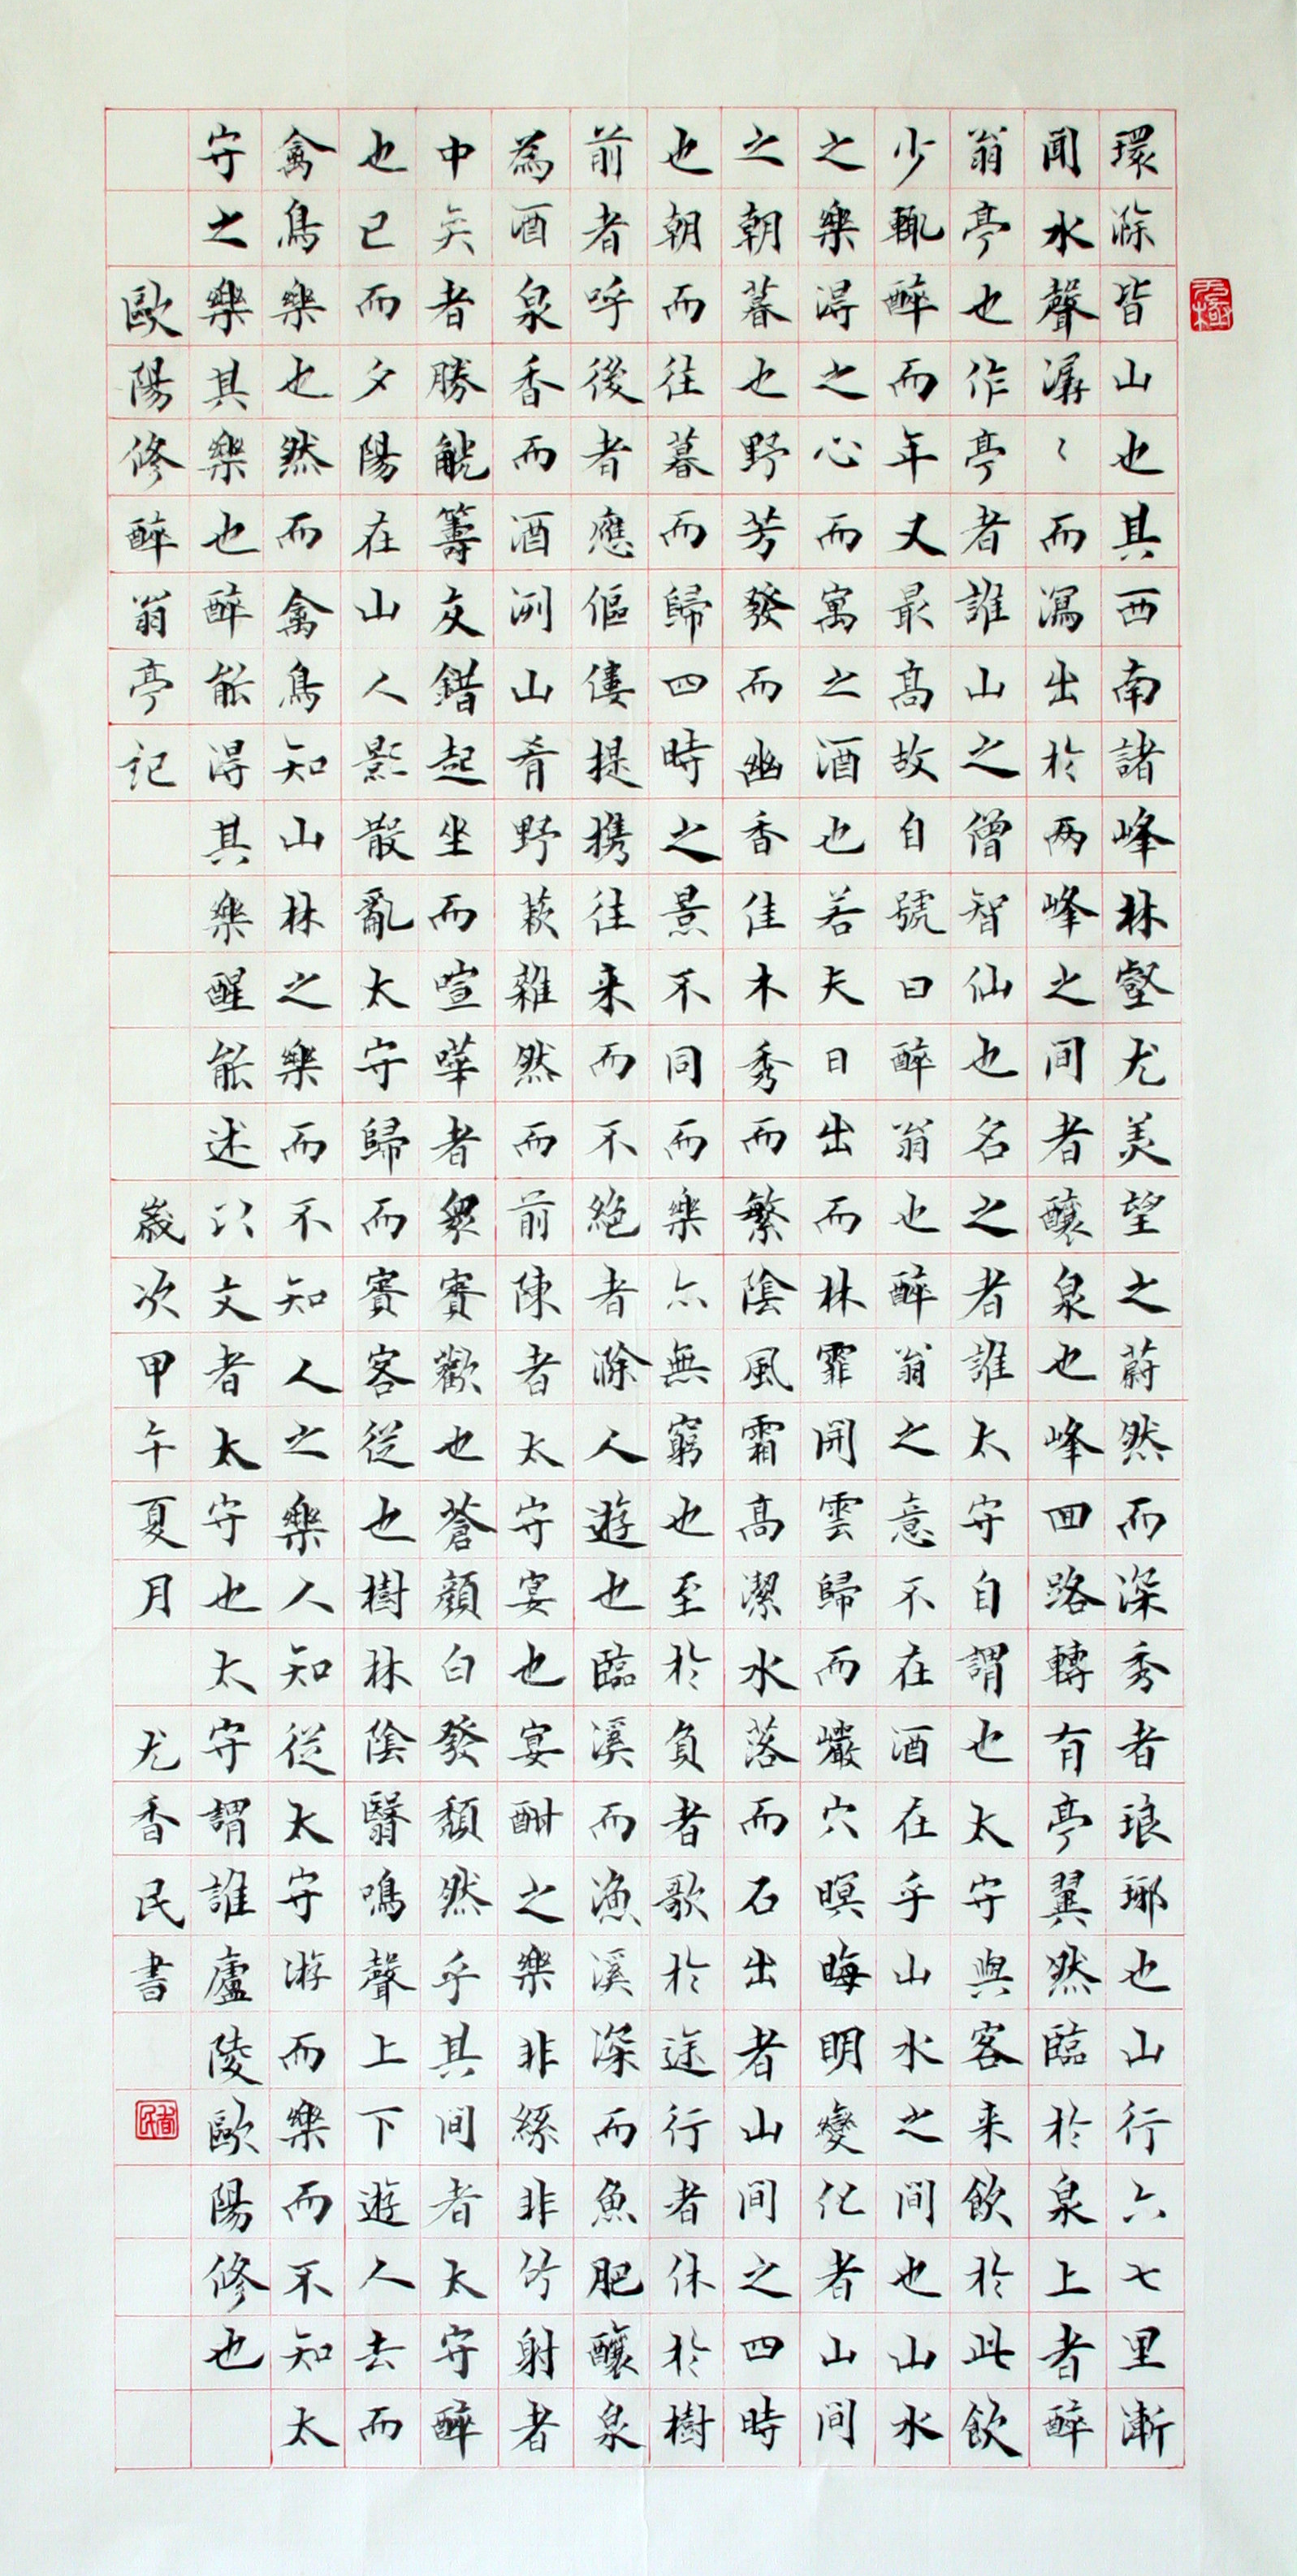 環滁皆山也其西南諸峰林壑尤美望之蔚然而深秀者琅琊也山行六七里漸
聞水聲潺〻而瀉出於兩峰之間者釀泉也峰回路轉有亭翼然臨於泉上者醉
翁亭也作亭者誰山之僧智仙也名之者誰太守自謂也太守與客来飲於此飲
少輒醉而年又最高故自號曰醉翁也醉翁之意不在酒在乎山水之間也山水
之樂得之心而寓之酒也若夫日出而林霏開雲歸而巖穴暝晦明變化者山間
之朝暮也野芳發而幽香佳木秀而繁陰風霜高潔水落而石出者山間之四時
也朝而往暮而歸四時之景不同而樂亦無窮也至於負者歌於途行者休於樹
前者呼後者應傴僂提携往来而不絕者滁人遊也臨溪而漁溪深而魚肥釀泉
為酒泉香而酒洌山肴野蔌雜然而前陳者太守宴也宴酣之樂非絲非竹射者
中矣者勝觥籌交錯起坐而喧嘩者衆賓歡也蒼顏白發頹然乎其間者太守醉
也已而夕陽在山人影散亂太守歸而賓客從也樹林陰翳鳴聲上下遊人去而
禽鳥樂也然而禽鳥知山林之樂而不知人之樂人知從太守游而樂而不知太
守之樂其樂也醉能得其樂醒能述以文者太守也太守謂誰廬陵歐陽修也
歐陽修醉翁亭記 歲次甲午夏月 尤香民書
香民